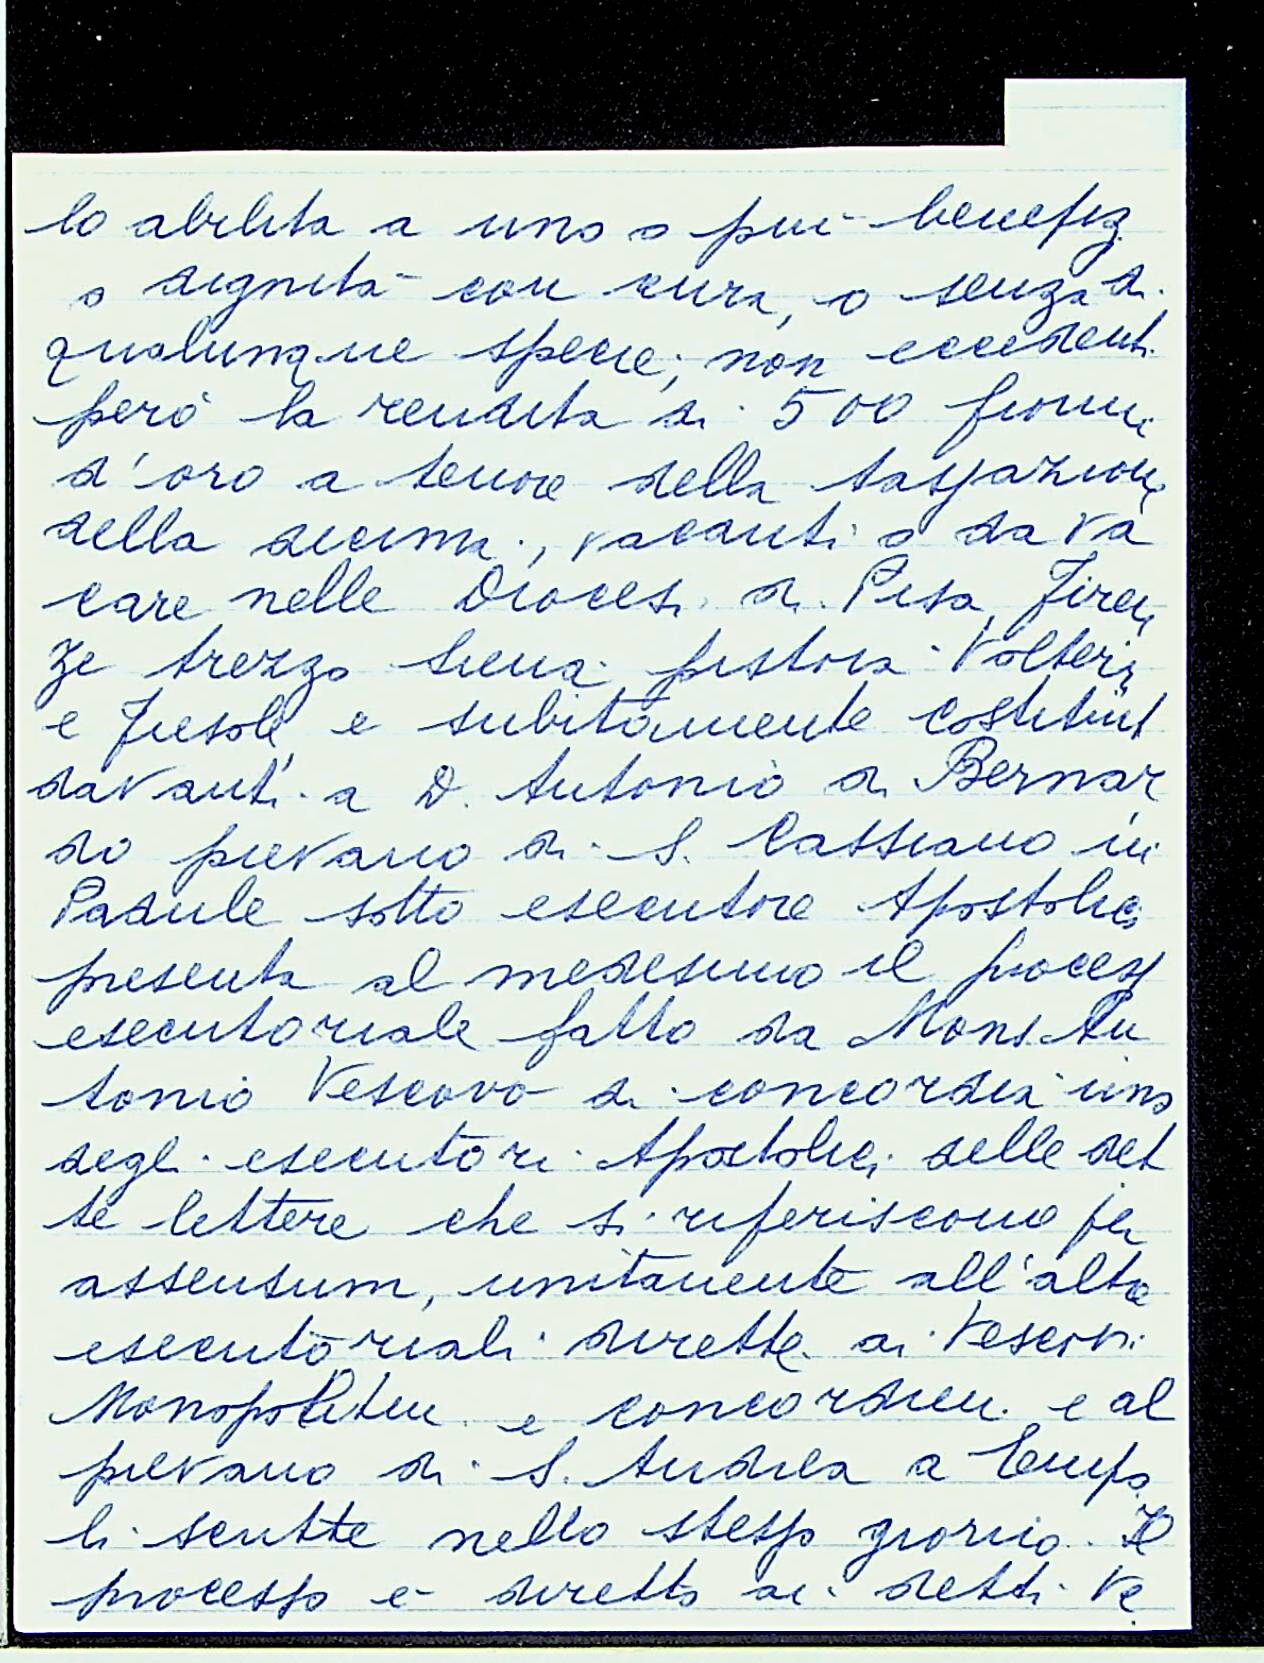 lo abilita a uno o più benefiz
o dignità con cura, o senza di
qualunque specie, non eccedenti
però la rendita di 500 fiorini
d'oro a tenore della tassazione
della decima, vacanti o da va
care nelle Diocesi di Pisa, Firen
ze Arezzo Siena pistoia Volterra
e Fiesole e subitamente costituit
davanti a D. Antonio di Bernar
do pievano di S. Cassiano in
Padule sotto esecutore Apostolico
presenta al medesimo il process
esecutoriale fatto da Mons. An
tonio Vescovo di concordia uno
degli esecutori Apostolici delle det
te lettere che si riferiscono per
assensum, unitamente all'altre
esecutoriali dirette ai Vescovi
Monopolitan e concordien. e al
pievano di S. Andrea a Empo
li scritte nello stesso giorno. Il
processo è diretto ai detti Ve